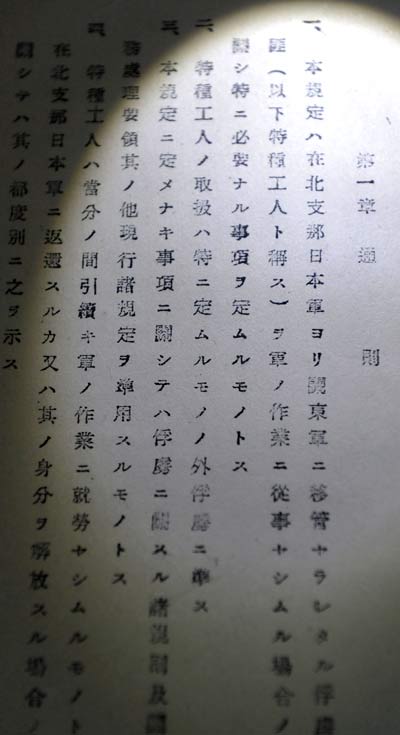 第一章　通　則
一、本規定ハ在北支那日本軍ヨリ關東軍ニ移管セラレタル俘虜
（以下特種工人ト稱ス）ヲ軍ノ作業ニ從事セシムル場合ノ
關シ特ニ必要ナル事項ヲ定ムルモノトス
二、特種工人ノ取扱ハ特ニ定ムルモノノ外俘虜ニ準ス
三、本規定ニ定メナキ事項ニ關シテハ俘虜ニ關スル諸規則及
務處理要領其ノ他現行諸規定ヲ準用スルモノトス
四、特種工人ハ當分ノ間引續キ軍ノ作業ニ就勞セシムルモノト
在北支那日本軍ニ返還スルカ又ハ其ノ身分ヲ解放スル場合ノ
關シテハ其ノ都度別ニ之ヲ示ス